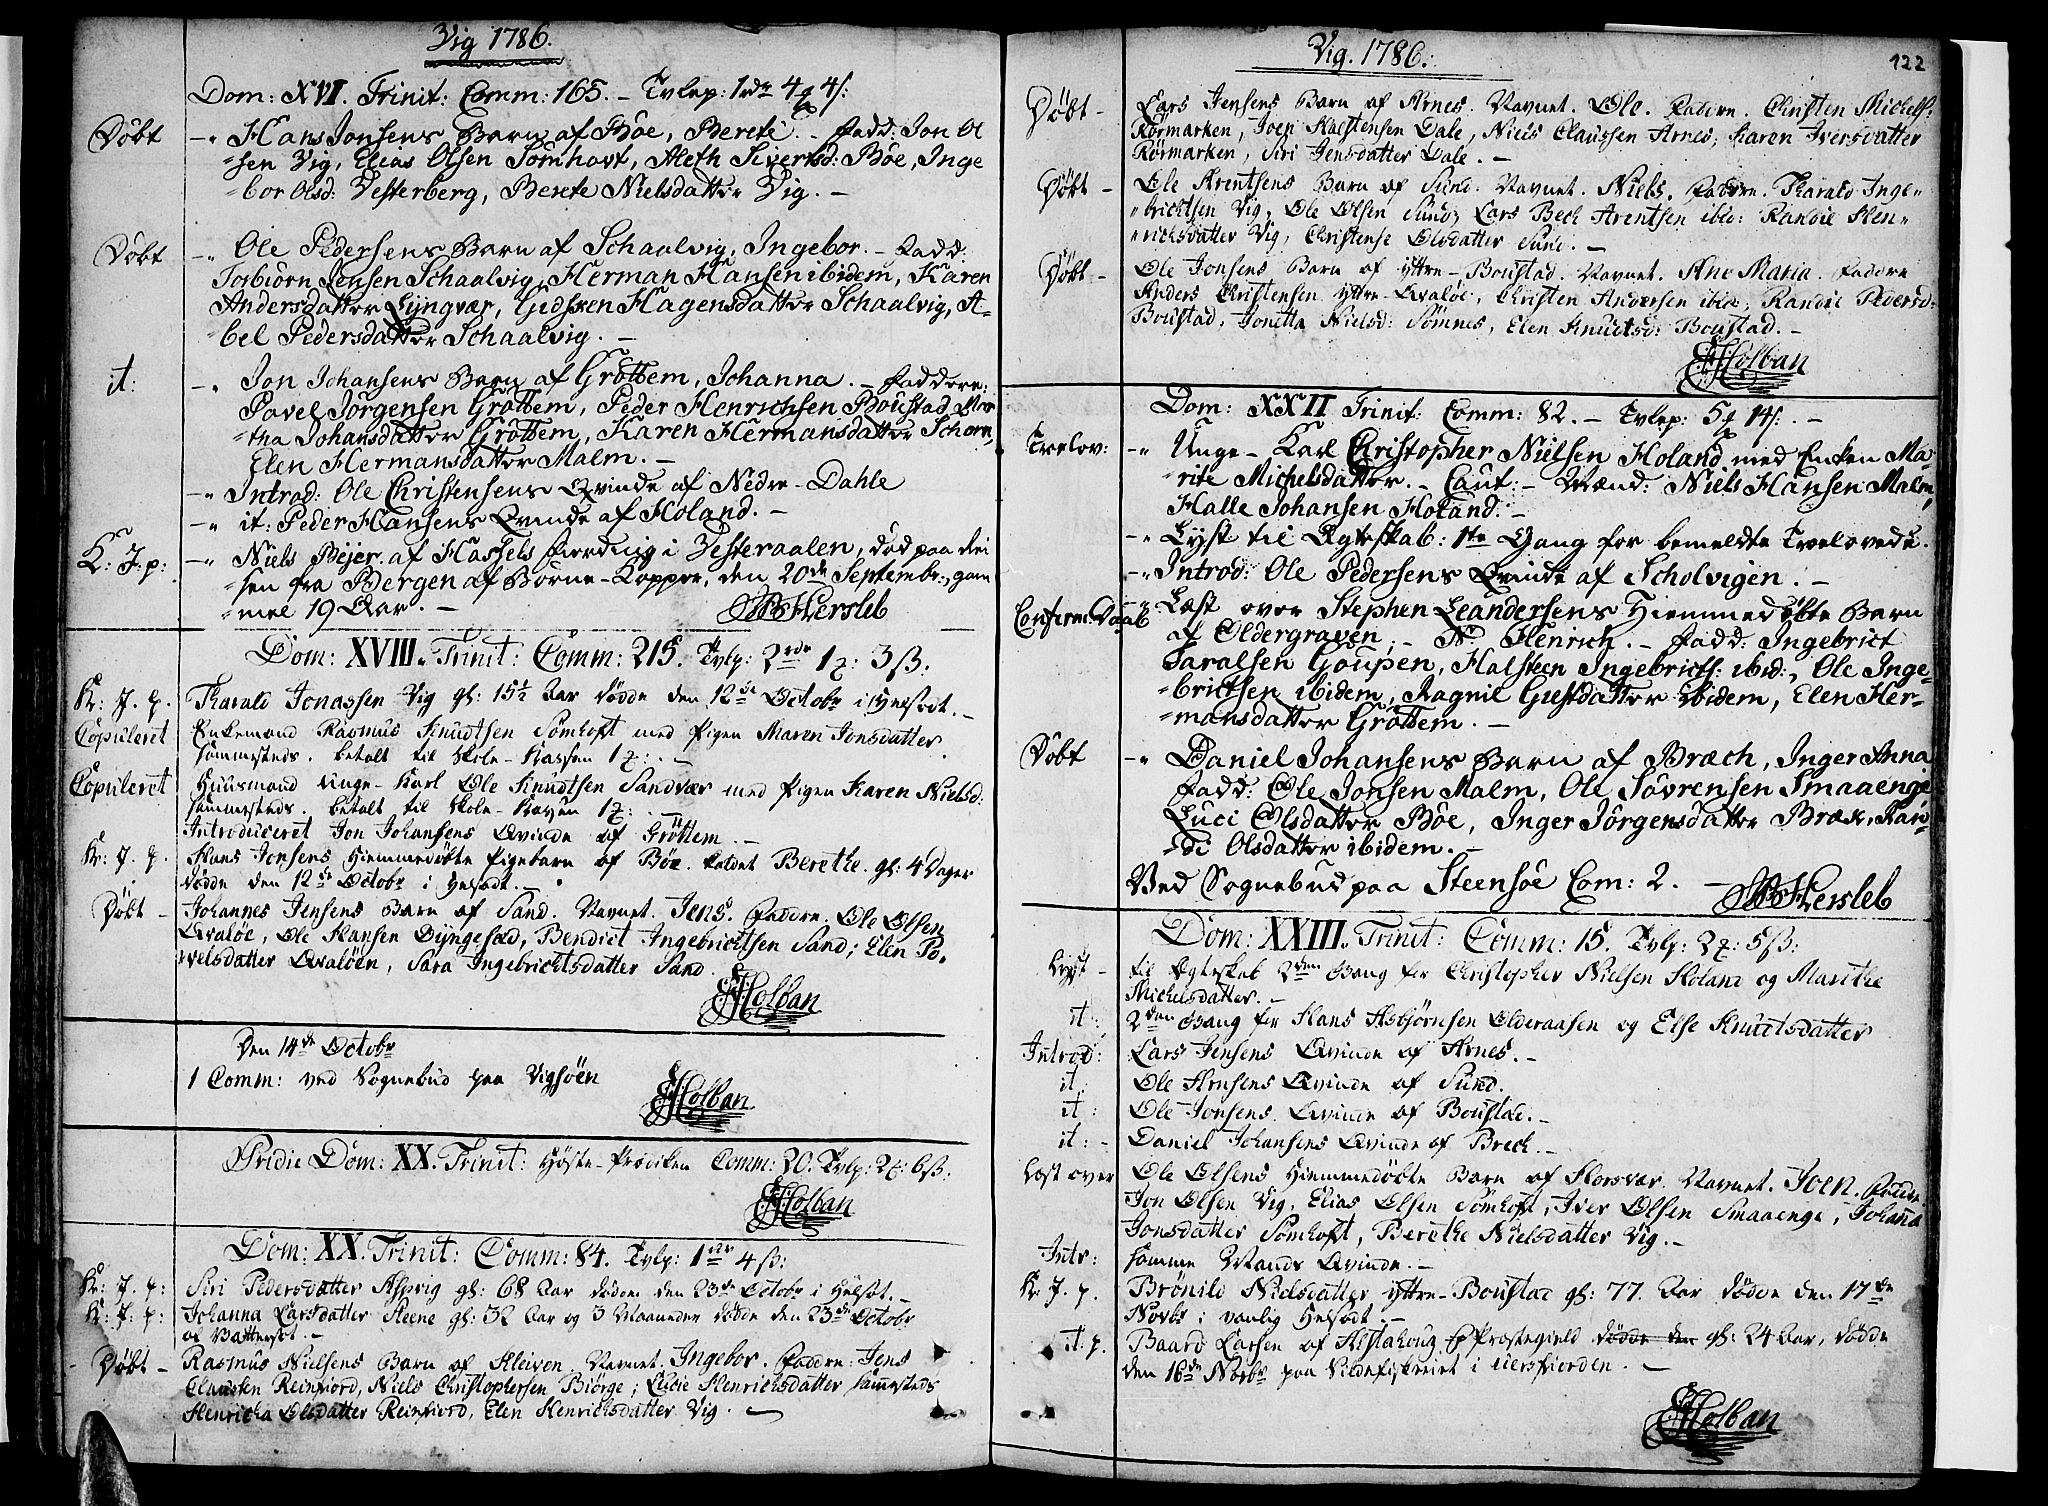 Vig 1786.
Dom: XVI. Trinit: Comm: 165. – Tvlep: 1rdr 4 4 s:
Döbt -„ Hans Jonsens Barn af Böe, Berete. – Fadd: Jon Ol
-sen Vig, Elias Olsen Sömhovt, Aleth Sivertsd: Böe, Inge
-bor Olsd: Vesterberg, Berete Nielsdatter Vig. –
Döbt -„ Ole Pedersens Barn af Schaalvig, Ingebor. – Fadd:
Torbiörn Jensen Schaalvig, Herman Hansen ibidem, Karen
Andersdatter Lyngvær, Gidsken Hagensdatter Schaalvig, A-
-bel Pedersdatter Schaalvig. –
it: -„ Jon Johansens Barn af Gröttem, Johanna. – Faddere:
Pavel Jörgensen Gröttem, Peder Henrichsen Boustad, Mar
-tha Johansdatter Gröttem, Karen Hermansdatter Schom,
Elen Hermansdatter Malm. –
-„ Introd: Ole Christensens Qvinde af Nedre-Dahle
-„ it: Peder Hansens Qvinde af Holand. –
K: J: p: -„ Niels Bejer af Hassels fierding i Vesteraalen, död paa Rei
-sen fra Bergen af Börne-Kopper, den 20de Septembr:, gam
-mel 19 Aar. – Hersleb
Dom: XVIII. Trinit: Comm: 215. Tvlp: 2rdr 1 : 3 ß:
Kr: J. p. Tharald Jonassen Vig gl: 15½ Aar dödde den 12te Octobr i Helsodt. –
Copuleret Enkemand Rasmus Knudtsen Sömhoft med Pigen Maren Jonsdatter
sammesteds. betalt til Skole-Kassen 1 : –
Copuleret Huusmand Unge-Karl Ole Knudtsen Sandvær med Pigen Karen Nielsd:
sammesteds. betalt til Skole-Kassen 1 :
Introduceret Jon Johansens Qvinde af Gröttem. –
Kr: J. p. Hans Jonsens Hiemmedöbte Pigebarn af Böe. kaldet Berethe. gl: 4 Dager
dödde den 12te Octobr i Helsodt. –
Döbt – Johannes Jensens Barn af Sand. Navnet. Jens. Faddre. Ole Olsen
Qvalöe, Ole Hansen Dyngesæd, Bendict Ingebrichtsen Sand; Elen Po-
-velsdatter Qvalöen, Sara Ingebrichtsdatter Sand
Holban
Den 14de Octobr
1 Comm: ved Sognebud paa Vigsöen
Holban
Pridie Dom: XX. Trinit: Höste-Præciken Comm: 20. Tvlp: 2 : 6 ß:
Holban
Dom: XX. Trinit: Comm: 84. Tvlp: 1rdr 4 ß:
Kr: J. p: Siri Pedersdatter gl: 68 Aar dödde den 23de Octobr i Helsot. –
Kr: J: p: Johanna Larsdatter Steene gl: 32 Aar og 3 Maaneder dödde den 23de Octobr
af Vattersot. –
Döbt – Rasmus Nielsens Barn af Kleiven. Navnet. Ingebor. Faddre: Jens
Claussen Reinfiord, Niels Christophersen Biörge; Lucie Henrichsdatter sammesteds
Henricka Olsdatter Reinfiord, Elen Henrichsdatter Vig. –
Vig. 1786.
122
Döbt – Lars Jensens Barn af Arnes. Navnet. Ole. Faddre. Christen Michels:
Rörmarken, Joen Halstensen Dale, Niels Claussen Arnes; Karen Iversdatter
Rörmarken, Siri Jensdatter Dale. –
Döbt – Ole Arentsens Barn af Sund. Navnet. Niels. Faddre. Tharald Inge-
-brichtsen Vig, Ole Olsen Sund, Lars Bech Arentsen ibid: Randie Hen-
-richsdatter Vig, Christense Olsdatter Sund. –
Döbt – Ole Jonsens Barn af yttre-Boustad. Navnet. Ane Maria. Faddre
Anders Christensen yttre-Qvalöe, Christen Andersen ibid; Randie Pedersd:
Boustad, Jonetta Nielsd: Sömnes, Elen Knudtsd: Boustad. –
Holban
Dom: XXII Trinit: Comm: 82. – Tvlep: 5 14 s: –
Trolov: -„ Unge-Karl Christopher Nielsen Holand med Enken Ma-
-rite Michelsdatter. – Caut: – Mænd: Niels Hansen Malm,
Halle Johansen Holand. –
-„ Lyst til Ægteskab: 1te Gang for bemeldte Trolovede.
-„ Introd: Ole Pedersens Qvinde af Scholvigen. –
Confirm: Daab -„ Læst over Stephen Leandersens Hiemmedöbte Barn
af Oldergraven; – N: Henrich. – Fadd: Ingebrict
Taralsen Goupen, Halsteen Ingebricts: ibid:, Ole Inge-
-brictsen ibidem, Ragnil Gustdatter ibidem, Elen Her-
-mansdatter Gröttem. –
Döbt -„ Daniel Johansens Barn af Bræch, Inger Anna
Fadd: Ole Jonsen Malm, Ole Sövrensen Smaaenge
Luci Olsdatter Böe, Inger Jörgensdatter Bræk, Ran-
-di Olsdatter ibidem. –
Ved Sognebud paa Steensöe Com: 2. – Hersleb
Dom: XXIII. Trinit: Comm: 15. Tvlp: 2 : 5 ß:
Lyst – til Ægteskab 2den Gang for Christopher Nielsen Holand og Marithe
Michelsdatter. –
it: 2den Gang for Hans Asbjörnsen Olderaasen og Else Knudtsdatter
Introd: Lars Jensens Qvinde af Arnes. –
it: Ole Arnsens Qvinde af Sund.
it: Ole Jonsens Qvinde af Boustad. –
it: – Daniel Johansens Qvinde af Brech. –
Læst over Ole Olsens Hiemmedöbte Barn af Horsvær. Navnet. Joen. Faddre
Jon Olsen Vig, Elias Olsen Sömhoft, Iver Olsen Smaaenge, Johanna
Jonsdatter Sömhoft, Berethe Nielsdatter Vig. –
Intr: samme Mands Qvinde. –
Kr. J. p. Brönild Nielsdatter yttre-Boustad gl: 77. Aar dödde den 17de
Novbr i vanlig Helsodt. –
it. p. Baard Larsen af Alstahoug Prostegield dödde den gl: 24 Aar, dödde
den 16de Novbr paa Sildefiskeriet i Eiersfiorden. –
Holban